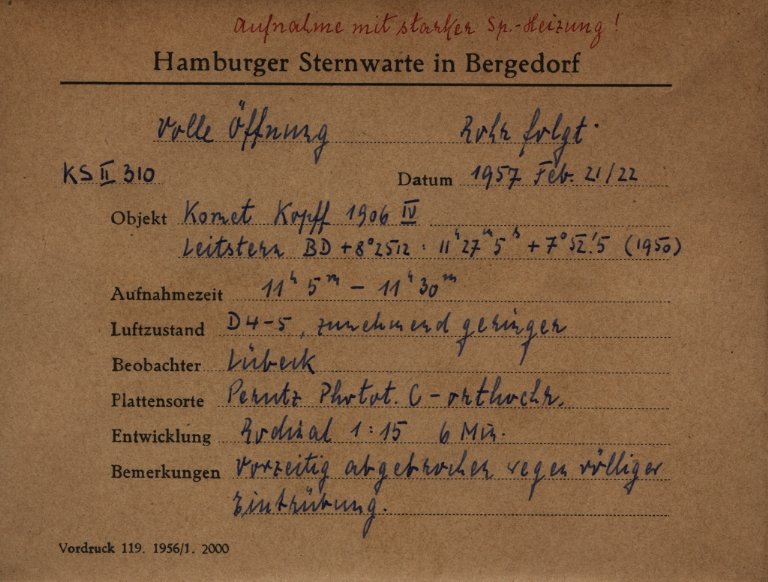 Aufnahme mit starker Sp.-Heizung!
Hamburger Sternwarte in Bergedorf
Volle Öffnung Rohr folgt.
KS II 310 Datum 1957 Feb. 21/22
Objekt Komet Kopff 1906 IV
Leitstern BD +8°2512 : 11ʰ27ᵐ5ˢ +7°52!5 (1950)
Aufnahmezeit 11ʰ 5ᵐ – 11ʰ 30ᵐ
Luftzustand D4-5, zunehmend geringer
Beobachter Lübeck
Plattensorte Perutz Photot. C-orthochr.
Entwicklung Rodinal 1:15 6 Min.
Bemerkungen Vorzeitig abgebrochen wegen völliger
Eintrübung.
Vordruck 119. 1956/1. 2000